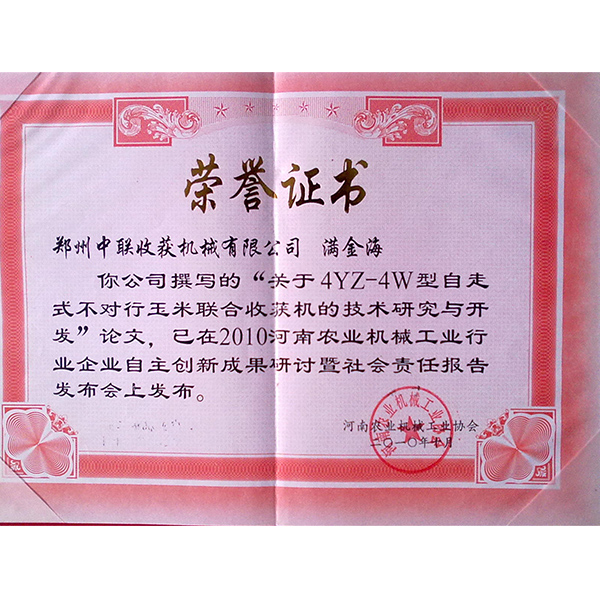 荣誉证书
郑州中联收获机械有限公司 满金海
你公司撰写的“关于4YZ-4W型自走
式不对行玉米联合收获机的技术研究与开
发”论文，已在2010河南农业机械工业行
业企业自主创新成果研讨暨社会责任报告
发布会上发布。
河南农业机械工业协会
二〇一〇年十月